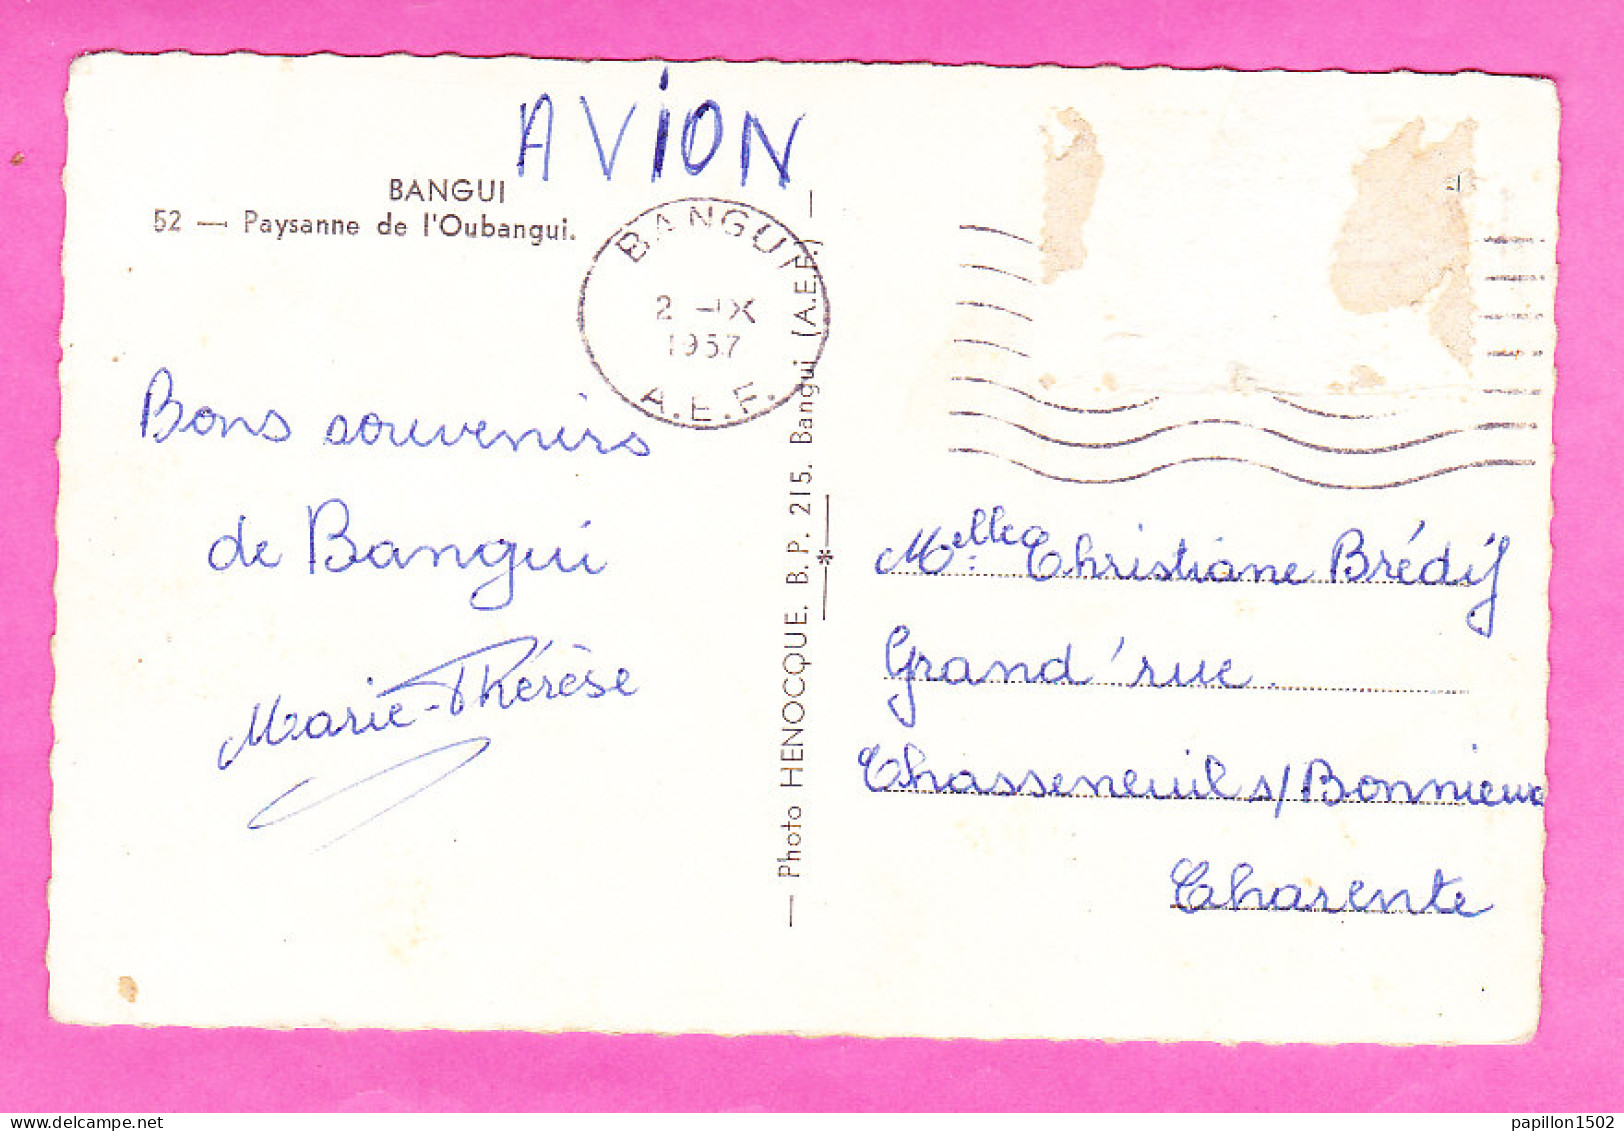 AVION
BANGUI
52 — Paysanne de l'Oubangui.
BANGUI
2 -IX
1957
A.E.F.
Bons souvenirs
de Bangui
Marie-Thérèse
— Photo HENOCQUE. B. P. 215. Bangui (A.E.F.) —
Melle Christiane Brédif
Grand'rue.
Chasseneuil s/Bonnieure
Charente
delcampe.net
papillon1502